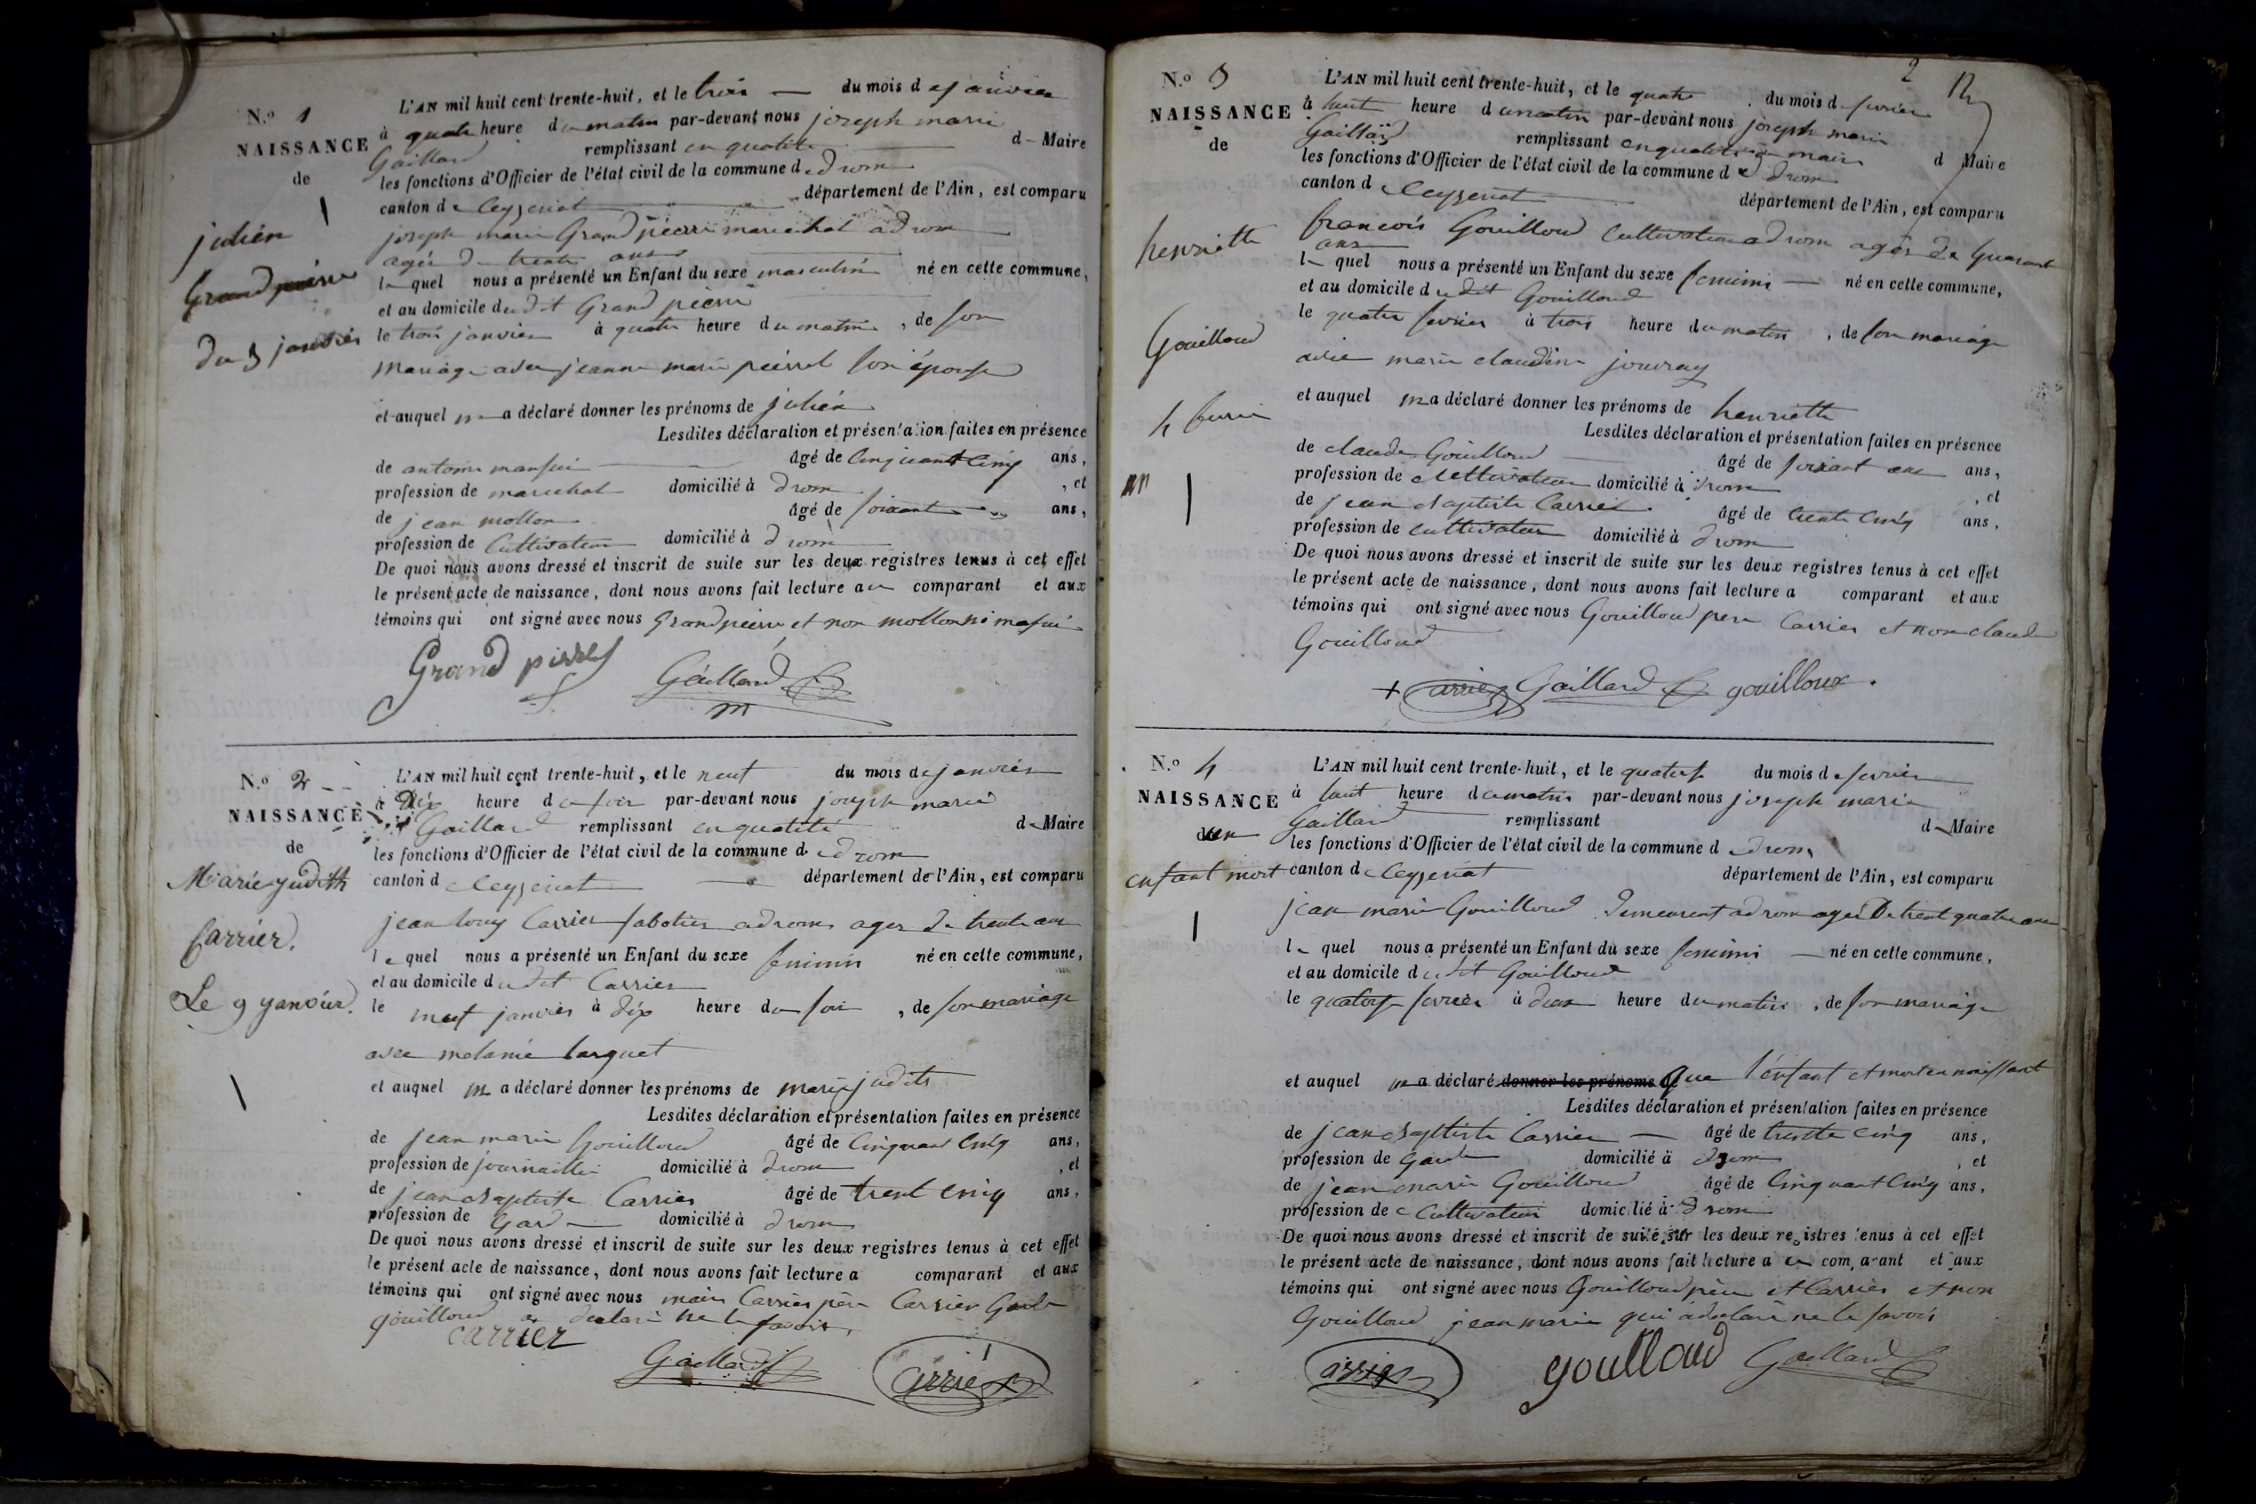 N.º 1
NAISSANCE
de
julién
Grandpiérre
du 3 janviér
L'AN mil huit cent trente-huit, et le trois du mois de janvier
à quatre heure du matin par-devant nous joseph marie
Gaillard remplissant en qualité d Maire
les fonctions d'Officier de l'état civil de la commune de drom
canton de Ceyzeriat département de l'Ain, est comparu
joseph marie Grandpiérre maréchal a drom
agé de trente ans
le quel nous a présenté un Enfant du sexe masculin né en cette commune,
et au domicile dudit Grandpiérre
le trois janvier à quatre heure du matin, de son
mariage avec jeanne marie son épouse
et auquel il a déclaré donner les prénoms de julién
Lesdites déclaration et présentation faites en présence
de antoine âgé de cinquant cinq ans,
profession de marechal domicilié à drom, et
de jean mollon âgé de soixante ans,
profession de Cultivateur domicilié à drom
De quoi nous avons dressé et inscrit de suite sur les deux registres tenus à cet effet
le présent acte de naissance, dont nous avons fait lecture au comparant et aux
témoins qui ont signé avec nous Grandpiérre et non mollon ni
Grand pierre Gaillard
N.º 2
NAISSANCE
de
Marie judith
Carriér.
Le 9 yanviér.
L'AN mil huit cent trente-huit, et le neuf du mois de janviér
à Dix heure du soir par-devant nous joseph marie
Gaillard remplissant en qualité de Maire
les fonctions d'Officier de l'état civil de la commune de drom
canton de Ceyzeriat département de l'Ain, est comparu
jean louy Carrier sabotier a drom ager de trente ans
le quel nous a présenté un Enfant du sexe feminin né en cette commune,
et au domicile dudit Carrier
le neuf janvier à dix heure du soir, de son mariage
avec melanie
et auquel il a déclaré donner les prénoms de marie judith
Lesdites déclaration et présentation faites en présence
de jean marie Gouilloud âgé de Cinquant Cinq ans,
profession de journaillié domicilié à drom, et
de jean baptiste Carrier âgé de trent cinq ans,
profession de Gard domicilié à drom
De quoi nous avons dressé et inscrit de suite sur les deux registres tenus à cet effet
le présent acte de naissance, dont nous avons fait lecture a comparant et aux
témoins qui ont signé avec nous maire Carrier père Carrier Garde
gouilloud a declaré ne le savoir.
carrier
Gaillard Carrier
2
N.º 3
NAISSANCE
de
henriette
Gouilloud
4 fevrier
L'AN mil huit cent trente-huit, et le quatre du mois de fevrier
à huit heure du matin par-devant nous joseph marie
Gaillard remplissant en qualité de maire d Maire
les fonctions d'Officier de l'état civil de la commune de drom
canton de Ceyzeriat département de l'Ain, est comparu
francois Gouilloud Cultivateur a drom ager de quarant
ans
le quel nous a présenté un Enfant du sexe feminin né en cette commune,
et au domicile dudit Gouilloud
le quatre fevrier à trois heure du matin, de son mariage
avec marie claudine
et auquel il a déclaré donner les prénoms de henriette
Lesdites déclaration et présentation faites en présence
de claude Gouilloud âgé de soixant ans,
profession de Cultivateur domicilié à drom, et
de jean baptiste Carrier âgé de trente cinq ans,
profession de Cultivateur domicilié à drom
De quoi nous avons dressé et inscrit de suite sur les deux registres tenus à cet effet
le présent acte de naissance, dont nous avons fait lecture a comparant et aux
témoins qui ont signé avec nous Gouilloud pere Carrier et non claude
Gouilloud
Carrier Gaillard gouilloux.
N.º 4
NAISSANCE
d'un
enfant mort
L'AN mil huit cent trente-huit, et le quatorze du mois de fevrier
à huit heure du matin par-devant nous joseph marie
Gaillard remplissant de Maire
les fonctions d'Officier de l'état civil de la commune d drom
canton de Ceyzeriat département de l'Ain, est comparu
jean marie Gouilloud demeurent a drom ager de trent quatre ans
le quel nous a présenté un Enfant du sexe feminin né en cette commune,
et au domicile dudit Gouilloud
le quatorze fevrier à deux heure du matin, de son mariage
et auquel il a déclaré donner les prénoms que l'énfant et mort en naissant
Lesdites déclaration et présentation faites en présence
de jean baptiste Carrier âgé de trentte cinq ans,
profession de Garde domicilié à drom, et
de jean marie Gouilloud âgé de Cinquant Cinq ans,
profession de Cultivateur domicilié à drom
De quoi nous avons dressé et inscrit de suite sur les deux registres tenus à cet effet
le présent acte de naissance, dont nous avons fait lecture a comparant et aux
témoins qui ont signé avec nous Gouilloud père et Carrier et non
Gouilloud jean marie qui a declaré ne le savoir
Carrier gouilloud Gaillard